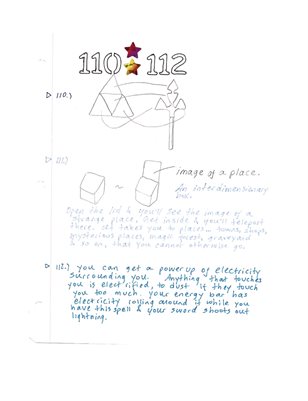 110 112
110.)
111.)
image of a place.
An interdimensionary
box.
Open the lid & you'll see the image of a
strange place. Get inside & you'll teleport
there. It takes you to places... towns, shops,
mysterious places, magic forest, graveyard
& so on, that you cannot otherwise go.
112.) you can get a powerup of electricity
surrounding you. Anything that touches
you is electrified, to dust if they touch
you too much. your energy bar has
electricity rolling around it while you
have this spell & your sword shoots out
lightning.